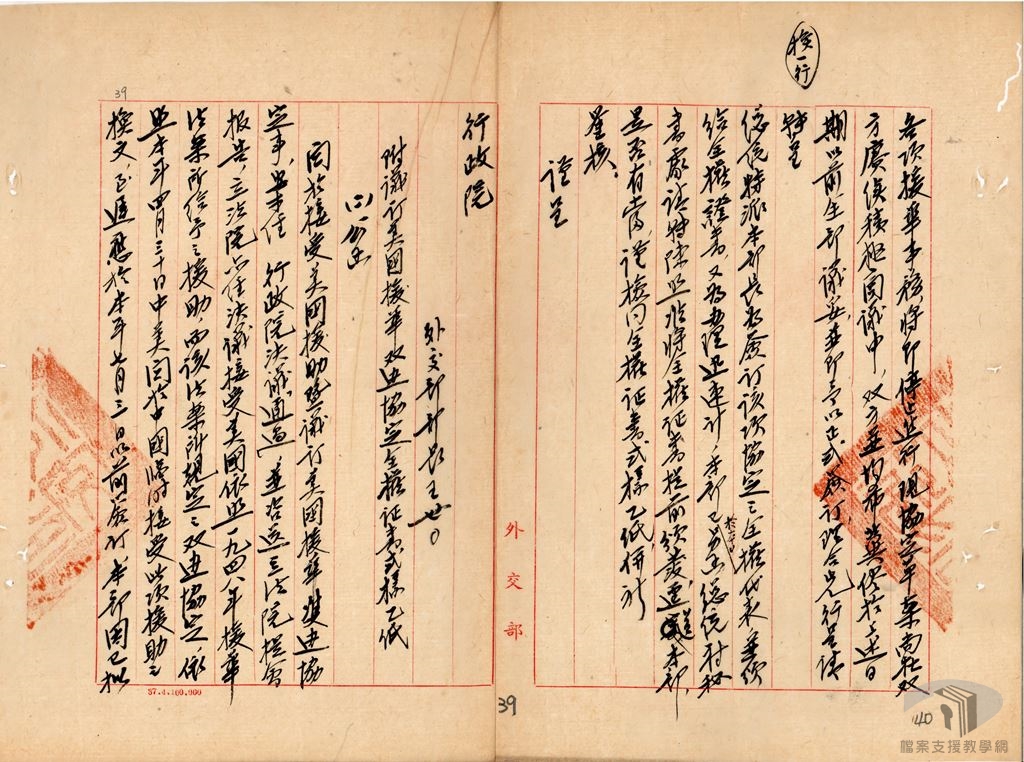 換一行
各項援華事務將即停止進行現協定草案尚在双
方賡續積極商議中，双方並均希冀俾於上述日
期以前全部議妥並即予以正式簽訂理合先行呈請
轉呈
總統特派本部長為簽訂該項協定之全權代表並頒
給全權證書，又為辦理迅速計，本部已於
函總統府秘
書處請轉陳照准將全權証書提前頒發逕送本部，
是否有當，謹檢同全權証書式樣乙紙併祈
鑒核。
謹呈
行政院
外交部部長王世○
附議訂美國援華双邊協定全權証書式樣乙紙
(二)公函
關於接受美國援助暨議訂美國援華双邊協
定事，業經 行政院決議通過，並咨送立法院提會
報告，立法院亦經決議接受美國依照一九四八年援華
法案所給予之援助，而該法案附規定之双邊協定，依
照本年四月三十日中美關於中國臨時接受此項援助之
換文至遲應於本年七月三日以前簽訂，本部因已擬
外交部
37.4.100.000
39
39
40
檔案支援教學網